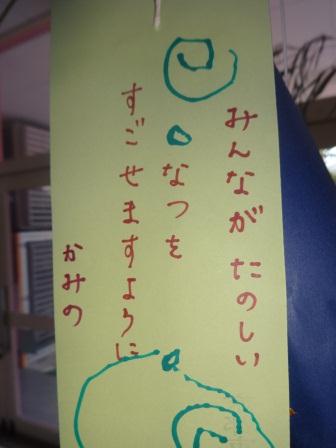 みんなが たのしい
なつを
すごせますように
かみの